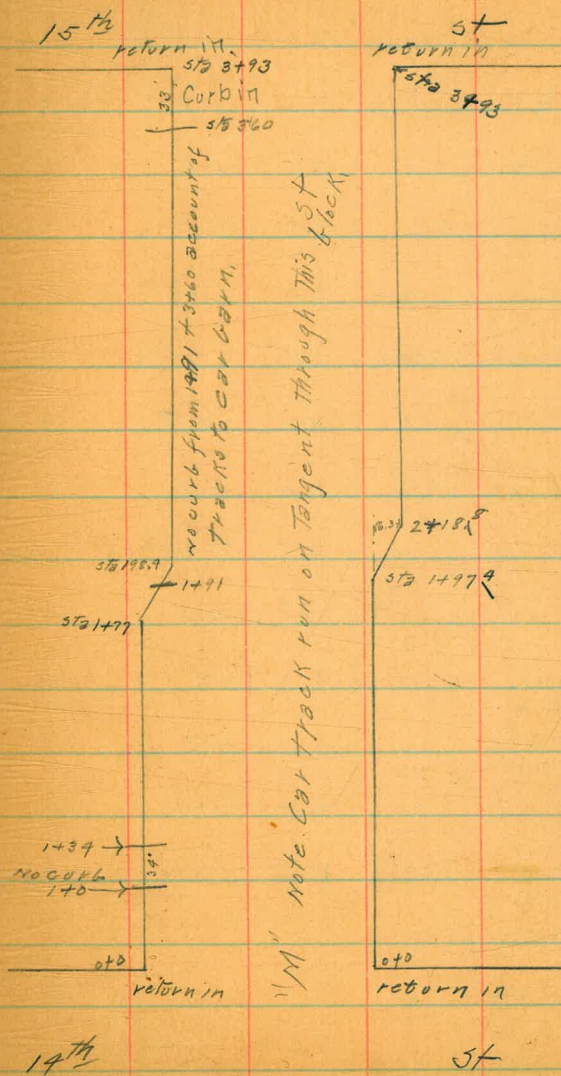 15th St
return in.
return in
sta 3+93
sta 3+93
33'
Curb in
sta 3+60
No curb from 1+91 to 3+60 account of
tracks to car barn.
"M" St
Note. Car track run on Tangent through this block.
2+18.8
sta 198.9
1+91
sta 1+97.4
sta 1+77
1+34
34'
No curb
1+0
0+0
0+0
return in
return in
14th St